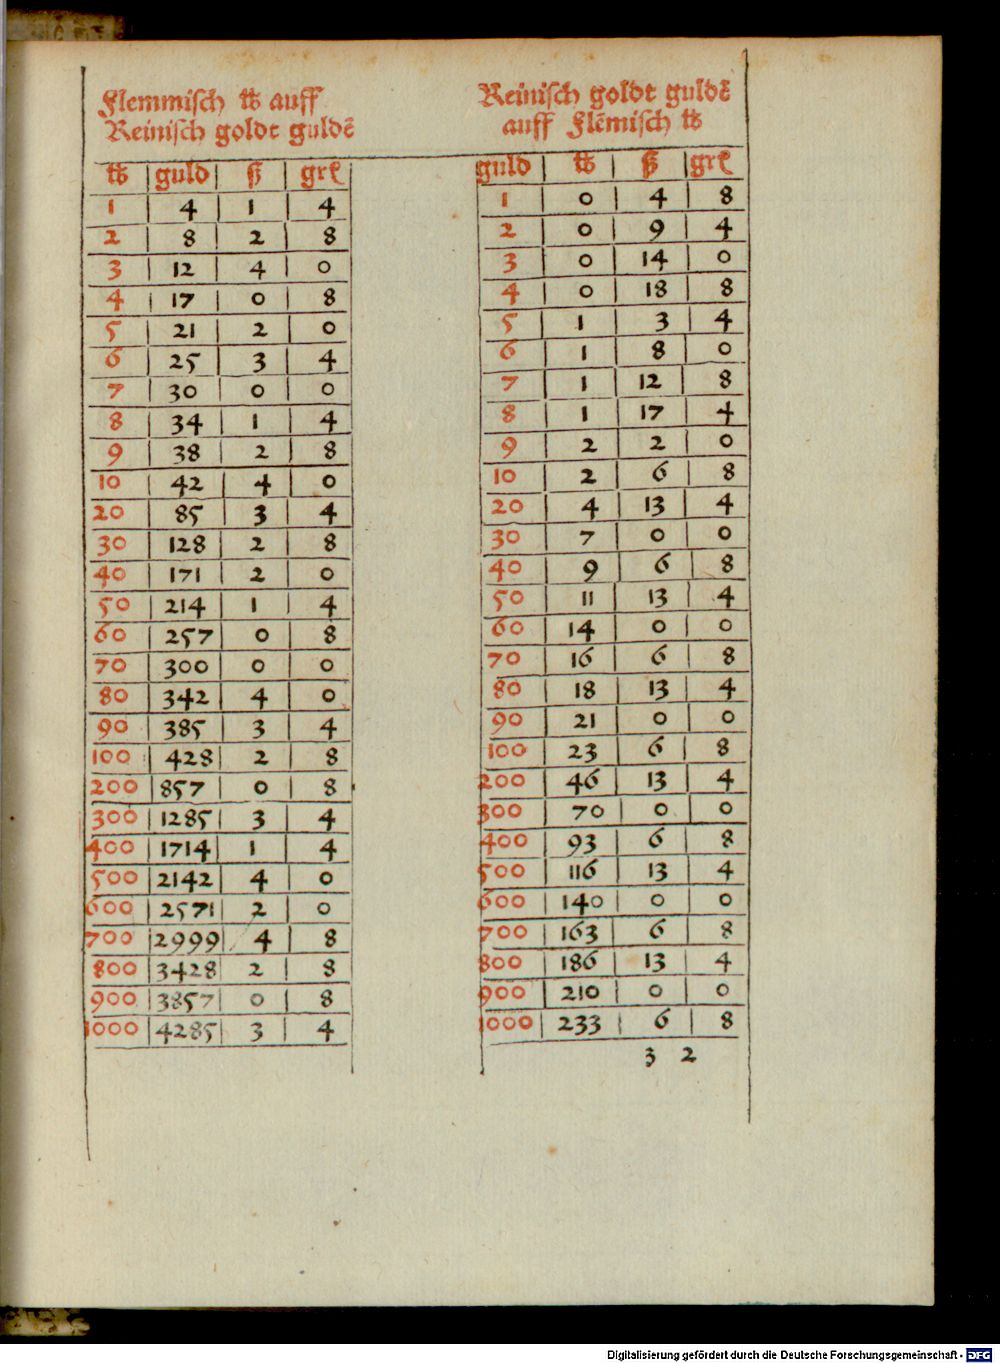 Flemmisch ℔ auff
Reinisch goldt guldē
℔ guld ß grſ
1 4 1 4
2 8 2 8
3 12 4 0
4 17 0 8
5 21 2 0
6 25 3 4
7 30 0 0
8 34 1 4
9 38 2 8
10 42 4 0
20 85 3 4
30 128 2 8
40 171 2 0
50 214 1 4
60 257 0 8
70 300 0 0
80 342 4 0
90 385 3 4
100 428 2 8
200 857 0 8
300 1285 3 4
400 1714 1 4
500 2142 4 0
600 2571 2 0
700 2999 4 8
800 3428 2 8
900 3857 0 8
1000 4285 3 4
Reinisch goldt guldē
auff Flēmisch ℔
guld ℔ ß grſ
1 0 4 8
2 0 9 4
3 0 14 0
4 0 18 8
5 1 3 4
6 1 8 0
7 1 12 8
8 1 17 4
9 2 2 0
10 2 6 8
20 4 13 4
30 7 0 0
40 9 6 8
50 11 13 4
60 14 0 0
70 16 6 8
80 18 13 4
90 21 0 0
100 23 6 8
200 46 13 4
300 70 0 0
400 93 6 8
500 116 13 4
600 140 0 0
700 163 6 8
800 186 13 4
900 210 0 0
1000 233 6 8
3 2
Digitalisierung gefördert durch die Deutsche Forschungsgemeinschaft - DFG